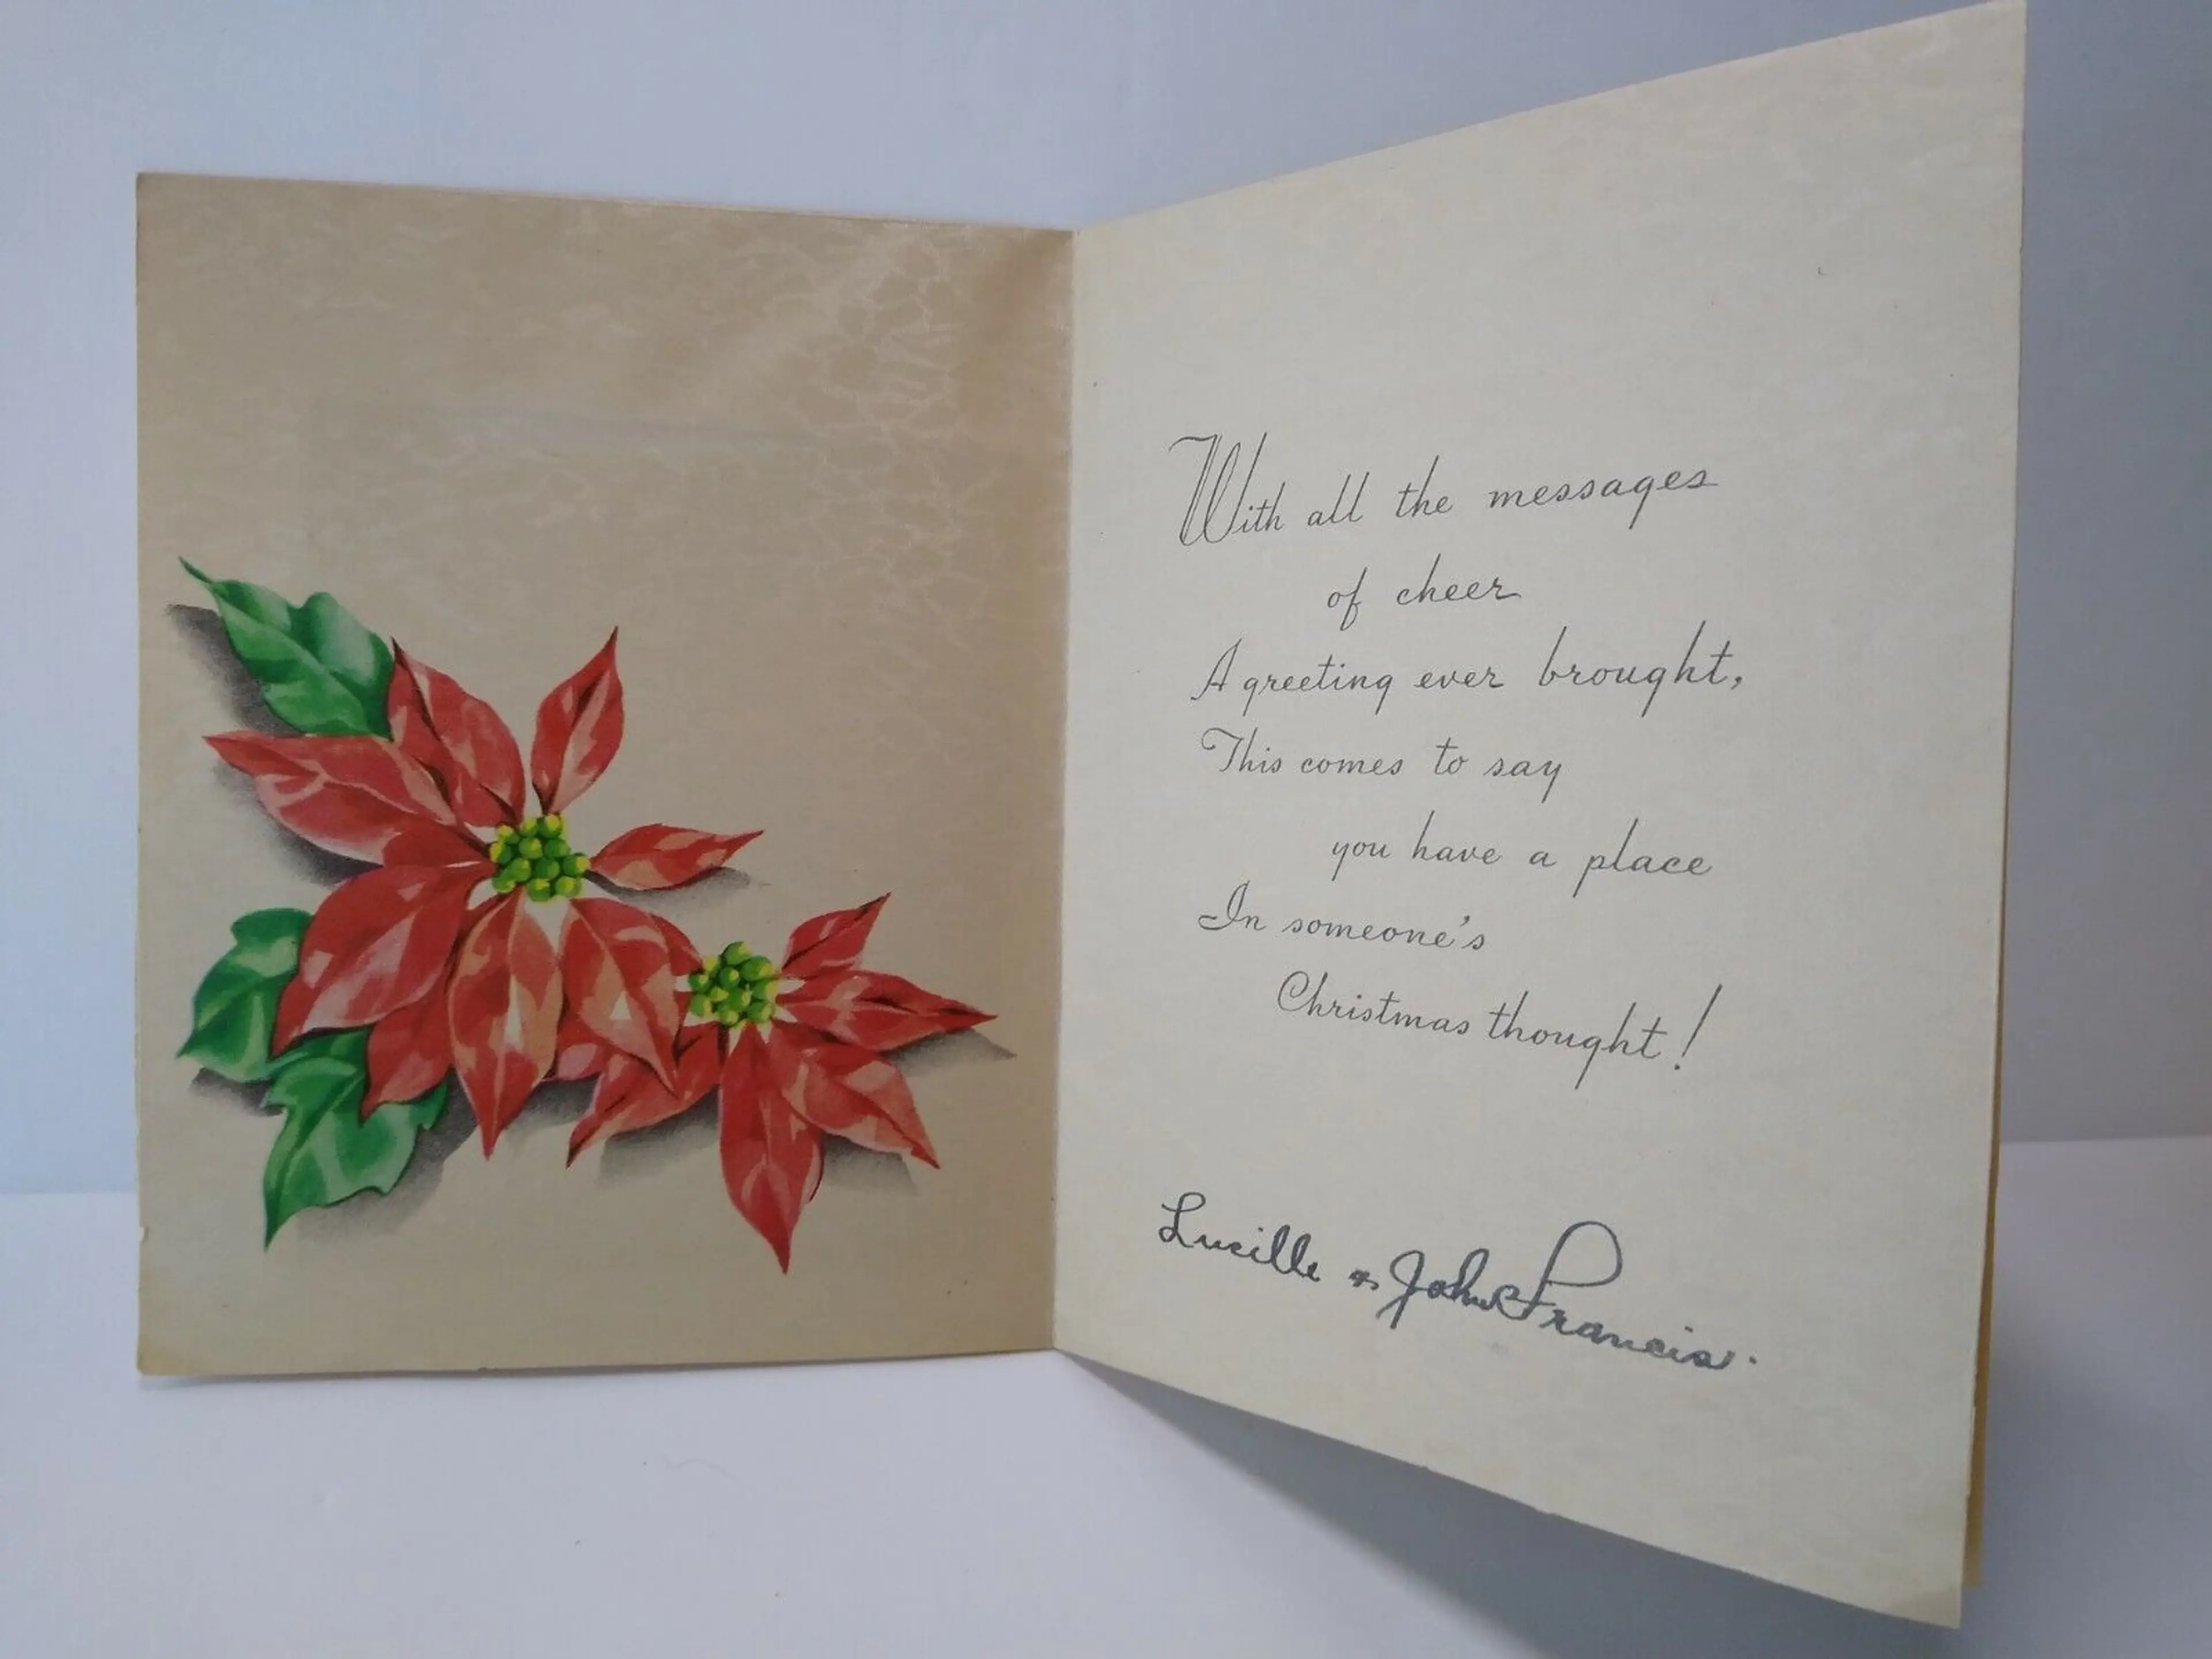 With all the messages
of cheer
A greeting ever brought,
This comes to say
you have a place
In someone's
Christmas thought!
Lucille & John Francis.